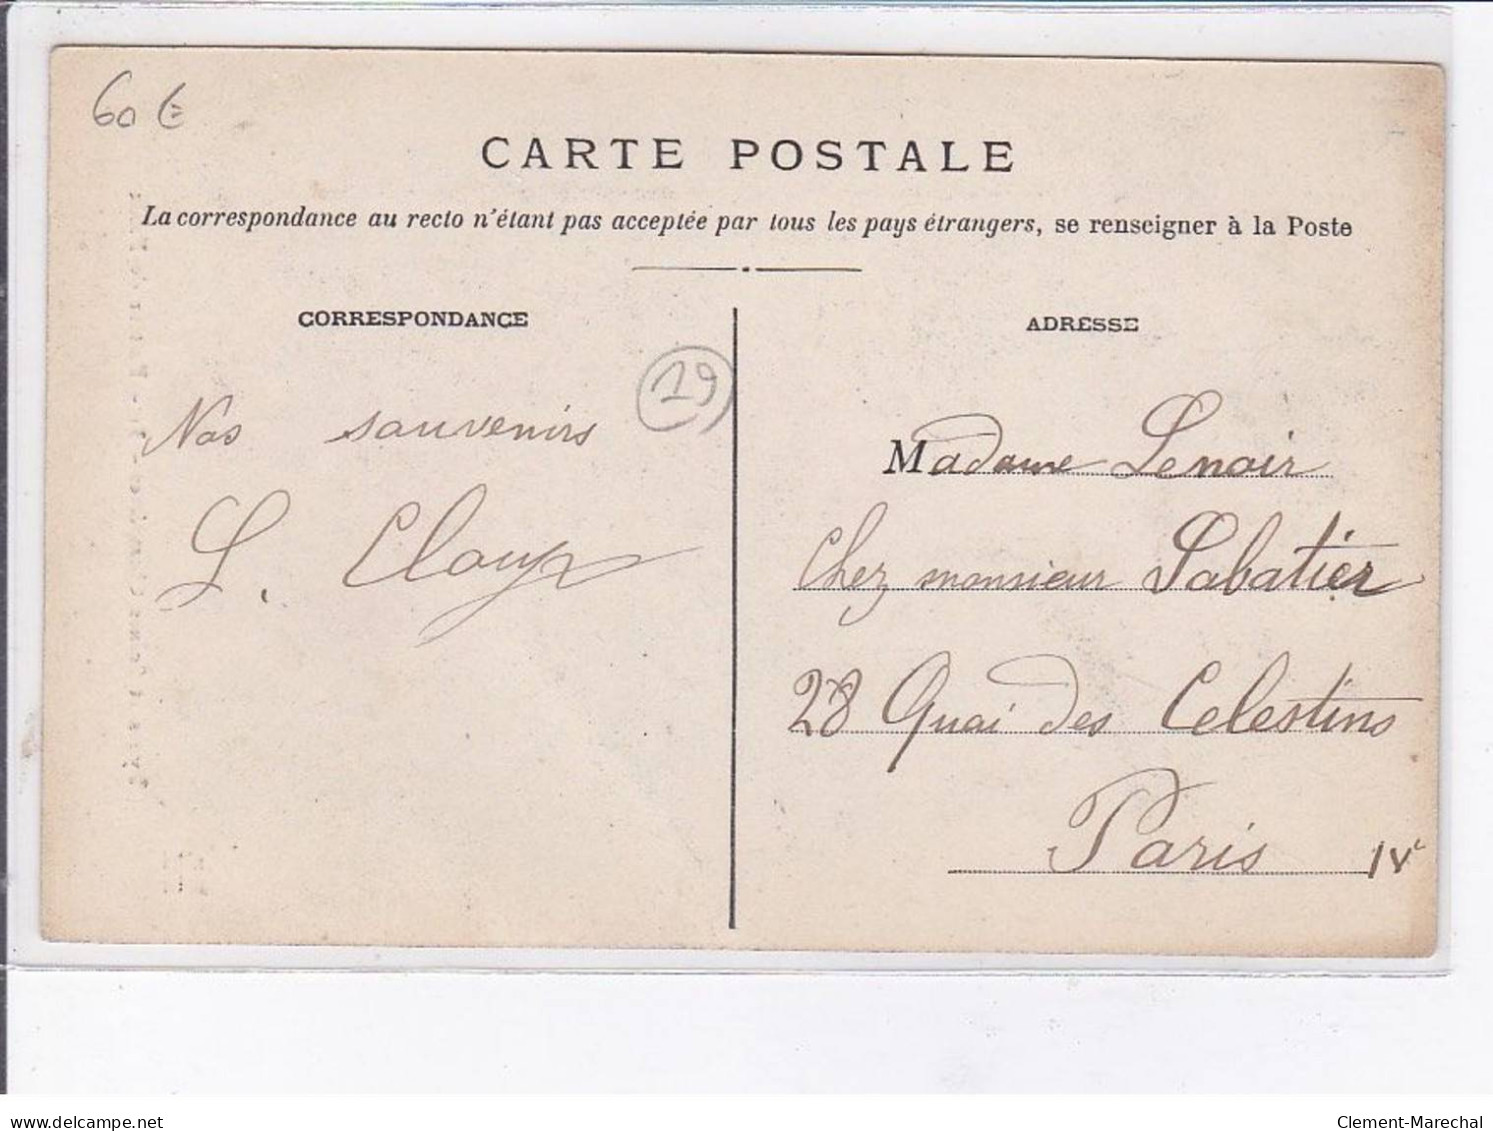 60 €
CARTE POSTALE
La correspondance au recto n'étant pas acceptée par tous les pays étrangers, se renseigner à la Poste
CORRESPONDANCE
19
Nos souvenirs
L.
ADRESSE
Madame Lenoir
Chez monsieur Sabatier
28 Quai des Celestins
Paris IVe
delcampe.net
Clement-Marechal